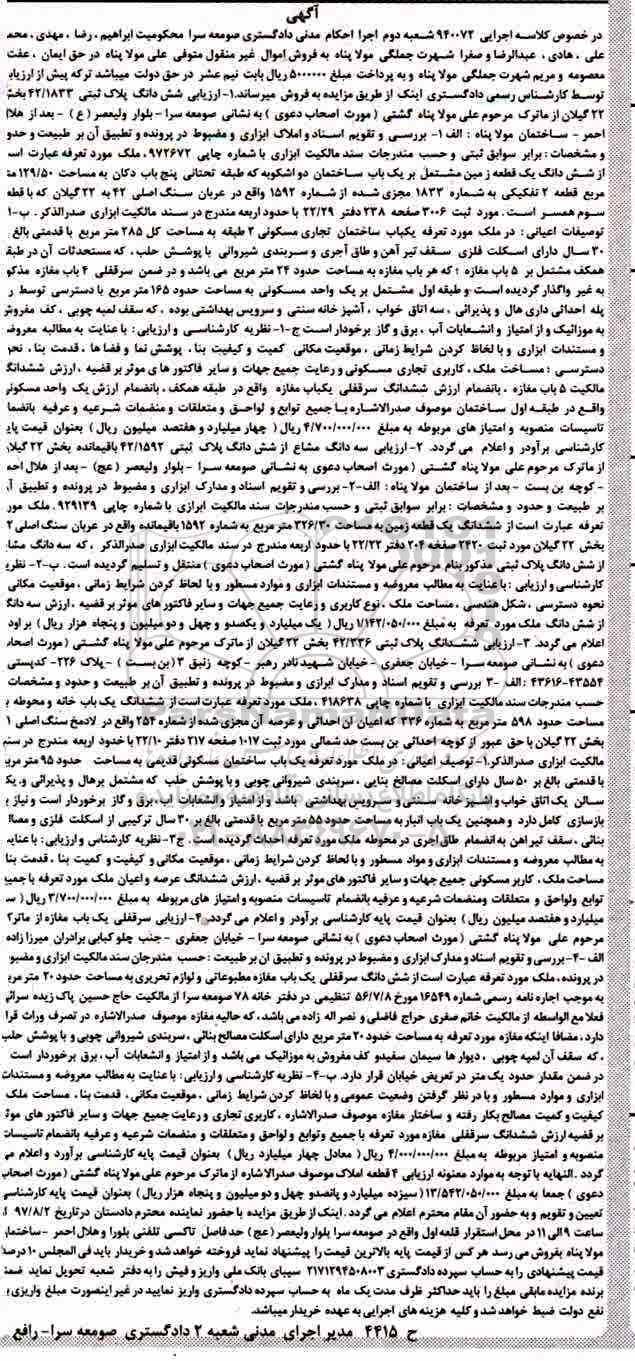 آگهی
در خصوص کلاسه اجرایی ۹۴۰۰۷۲ شعبه دوم اجرا احکام مدنی دادگستری صومعه سرا محکومیت ابراهیم ، رضا ، مهدی ، محمد
علی ، هادی ، عبدالرضا و صفرا شهرت جملگی مولا پناه به فروش اموال غیر منقول متوفی علی مولا پناه در حق ایمان ، عفت
معصومه و مریم شهرت جملگی مولا پناه و به پرداخت مبلغ ۵۰۰۰۰۰۰ ریال بابت نیم عشر در حق دولت میباشد ترکه پیش از ارزیابی
توسط کارشناس رسمی دادگستری اینک از طریق مزایده به فروش میرساند.۱- ارزیابی شش دانگ پلاک ثبتی ۴۲/۱۸۳۳ بخش
۲۲ گیلان از ماترک مرحوم علی مولا پناه گشتی ( مورث اصحاب دعوی ) به نشانی صومعه سرا - بلوار ولیعصر ( ع ) - بعد از هلال
احمر - ساختمان مولا پناه : الف ۱- بررسی و تقویم اسناد و املاک ابزاری و مضبوط در پرونده و تطبیق آن بر طبیعت و حدود
و مشخصات : برابر سوابق ثبتی و حسب مندرجات سند مالکیت ابزاری با شماره چاپی ۹۷۲۶۷۲ ، ملک مورد تعرفه عبارت است
از شش دانگ یک قطعه زمین مشتمل بر یک باب ساختمان دو اشکوبه که طبقه تحتانی پنج باب دکان به مساحت ۱۲۹/۵۰ متر
مربع قطعه ۲ تفکیکی به شماره ۱۸۳۳ مجزی شده از شماره ۱۵۹۲ واقع در عربان سنگ اصلی ۴۲ به ۲۲ گیلان که با قطعه
سوم همسر است . مورد ثبت ۳۰۰۶ صفحه ۲۳۸ دفتر ۲۲/۲۹ با حدود اربعه مندرج در سند مالکیت ابزاری صدرالذکر . ب-۱
توصیفات اعیانی : در ملک مورد تعرفه یکباب ساختمان تجاری مسکونی ۲ طبقه به مساحت کل ۲۸۵ متر مربع با قدمتی بالغ بر
۳۰ سال دارای اسکلت فلزی سقف تیر آهن و طاق آجری و سربندی شیروانی با پوشش حلب ، که مستحدثات آن در طبقه
همکف مشتمل بر ۵ باب مغازه ؛ که هر باب مغازه به مساحت حدود ۲۴ متر مربع می باشد و در ضمن سرقفلی ۴ باب مغازه مذکور
به غیر واگذار گردیده است و طبقه اول مشتمل بر یک واحد مسکونی به مساحت حدود ۱۶۵ متر مربع با دسترسی توسط راه
پله احداثی داری هال و پذیرائی ، سه اتاق خواب ، آشپز خانه سنتی و سرویس بهداشتی بوده ، که سقف لمبه چوبی ، کف مفروش
به موزائیک و از امتیاز و انشعابات آب ، برق و گاز برخودار است ج-۱- نظریه کارشناسی و ارزیابی : با عنایت به مطالبه معروضه
و مستندات ابزاری و با لحاظ کردن شرایط زمانی ، موقعیت مکانی کمیت و کیفیت بنا ، پوشش نما و فضا ها ، قدمت بنا ، نحوه
دسترسی ؛ مساخت ملک ، کاربری تجاری مسکونی و رعایت جمیع جهات و سایر فاکتور های موثر بر قضیه ، ارزش ششدانگ
مالکیت ۵ باب مغازه ، بانضمام ارزش ششدانگ سرقفلی یکباب مغازه واقع در طبقه همکف ، بانضمام ارزش یک واحد مسکونی
واقع در طبقه اول ساختمان موصوف صدرالاشاره با جمیع توابع و لواحق و متعلقات و منضمات شرعیه و عرفیه بانضمام
تاسیسات منصوبه و امتیاز های مربوطه به مبلغ ۴/۷۰۰/۰۰۰/۰۰۰ ریال ( چهار میلیارد و هفتصد میلیون ریال ) بعنوان قیمت پایه
کارشناسی برآودر و اعلام می گردد. ۲- ارزیابی سه دانگ مشاع از شش دانگ پلاک ثبتی ۴۲/۱۵۹۲ باقیمانده بخش ۲۲ گیلان
از ماترک مرحوم علی مولا پناه گشتی ( مورث اصحاب دعوی به نشانی صومعه سرا - بلوار ولیعصر (عج) - بعد از هلال احمر
- کوچه بن بست - بعد از ساختمان مولا پناه : الف-۲- بررسی و تقویم اسناد و مدارک ابزاری و مضبوط در پرونده و تطبیق آن
بر طبیعت و حدود و مشخصات : برابر سوابق ثبتی و حسب مندرجات سند مالکیت ابرازی با شماره چاپی ۹۲۹۱۳۹ ، ملک مورد
تعرفه عبارت است از ششدانگ یک قطعه زمین به مساحت ۳۲۶/۳۰ متر مربع به شماره ۱۵۹۲ باقیمانده واقع در عربان سنگ اصلی ۴۲
بخش ۲۲ گیلان مورد ثبت ۲۴۲۰ صفحه ۲۰۴ دفتر ۲۲/۲۲ با حدود اربعه مندرج در سند مالکیت ابزاری صدرالذکر ، که سه دانگ مشاع
از شش دانگ پلاک ثبتی مذکور بنام مرحوم علی مولا پناه گشتی ( مورث اصحاب دعوی ) منتقل و تسلیم گردیده است . ب-۲- نظریه
کارشناسی و ارزیابی : با عنایت به مطالب معروضه و مستندات ابزاری و موارد مسطور و با لحاظ کردن شرایط زمانی ، موقعیت مکانی
نحوه دسترسی ، شکل هندسی ، مساحت ملک ، نوع کاربری و رعایت جمیع جهات و سایر فاکتور های موثر بر قضیه ، ارزش سه دانگ
از شش دانگ ملک مورد تعرفه به مبلغ ۱/۱۴۲/۰۵۰/۰۰۰ ریال ( یک میلیارد و یکصدو و چهل و دو میلیون و پنجاه هزار ریال ) براود
اعلام می گردد. ۳- ارزیابی ششدانگ پلاک ثبتی ۴۲/۳۳۶ بخش ۲۲ گیلان از ماترک مرحوم علی مولا پناه گشتی ( مورث اصحاب
دعوی ) به نشانی صومعه سرا - خیابان جعفری - خیابان شهید نادر رهبر - کوچه زنبق ۳ (بن بست ) - پلاک ۲۲۶- کدپستی
۴۳۶۱۶-۴۳۵۵۴ : الف -۳ بررسی و تقویم اسناد و مدارک ابرازی و مضبوط در پرونده و تطبیق آن بر طبیعت و حدود و مشخصات :
حسب مندرجات سند مالکیت ابزاری با شماره چاپی ۴۱۸۶۳۸ ، ملک مورد تعرفه عبارت است از ششدانگ یک باب خانه و محوطه به
مساحت حدود ۵۹۸ متر مربع به شماره ۳۳۶ که اعیان ان احداثی و عرصه آن مجزی شده از شماره ۲۵۴ واقع در لادمخ سنگ اصلی
بخش ۲۲ گیلان با حق عبور از کوچه احداثی بن بست حد شمالی مورد ثبت ۱۰۱۷ صفحه ۲۱۷ دفتر ۲۲/۱۰ با حدود اربعه مندرج در سند
مالکیت ابزاری صدرالذکر.۱- توصیف اعیانی : در ملک مورد تعرفه یک باب ساختمان مسکونی قدیمی به مساحت حدود ۹۵ متر مربع
با قدمتی بالغ بر ۵۰ سال دارای اسکلت مصالح بنایی ، سربندی شیروانی چوبی و با پوشش حلب که مشتمل برهال و پذیرائی و، یک
سالن یک اتاق خواب و اشپز خانه سنتی و سرویس بهداشتی باشد و از امتیاز وانشعابات آب ، برق و گاز برخوردار است و نیاز به
بازسازی کامل دارد و همچنین یک باب انبار به مساحت حدود ۵۵ متر مربع با قدمتی بالغ بر ۳۰ سال ترکیبی از اسکلت فلزی و مصالح
بنائی ، سقف تیر اهن به انضمام طاق اجری در محوطه ملک مورد تعرفه احداث گردیده است . ج۳- نظریه کارشناس و ارزیابی : با عنایت
به مطالب معروضه و مستندات ابزاری و مواد مسطور و با لحاظ کردن شرایط زمانی ، موقعیت مکانی و کیفیت و کمیت بنا ، قدمت بنا
مساحت ملک ، کاربر مسکونی جمیع جهات و سایر فاکتور های موثر بر قضیه ، ارزش ششدانگ عرصه و اعیان ملک مورد تعرفه با جمیع
توابع ولواحق و متعلقات ومنضمات شرعیه و عرفیه بانضمام تاسیسات منصوبه و امتیاز های مربوطه به مبلغ ۳/۷۰۰/۰۰۰/۰۰۰ ریال ( سه
میلیارد و هفتصد میلیون ریال ) بعنوان قیمت پایه کارشناسی برآودر و اعلام می گردد. ۴- ارزیابی سرقفلی یک باب مغازه از ماترک
مرحوم علی مولا پناه گشتی ( مورث اصحاب دعوی ) به نشانی صومعه سرا - خیابان جعفری - جنب چلو کبابی برادران میرزا زاده :
الف -۴- بررسی و تقویم اسناد و مدارک ابزاری و مضبوط در پرونده و تطبیق ان بر طبیعت : حسب مندرجان سند مالکیت ابزاری و مضبوط
در پرونده ، ملک مورد تعرفه عبارت است از شش دانگ سرقفلی یک باب مغازه مطبوعاتی و لوازم تحریری به مساحت حدود ۲۰ متر مربع
به موجب اجاره نامه رسمی شماره ۱۶۵۴۹ مورخ ۵۶/۷/۸ تنظیمی در دفتر خانه ۷۸ صومعه سرا از مالکیت حاج حسین پاک زیده سرائی
فعلا مع الواسطه از مالکیت خانم صغری حراج فاضلی و نصر اله زاده می باشد ، که حالیه مغازه موصوف صدرالاشاره در تصرف وراث قرار
دارد ، مضافا اینکه مغازه مورد تعرفه به مساحت حدود ۲۰ متر مربع دارای اسکلت مصالح بنائی ، سربندی شیروانی چوبی و با پوشش حلب
، که سقف آن لمبه چوبی ، دیوار ها سیمان سفیدو کف مفروش به موزائیک می باشد و از امتیاز و انشعابات آب ، برق برخوردار است .
در ضمن مقدار حدود یک متر در تعریض خیابان قرار دارد. ب-۴- نظریه کارشناسی و ارزیابی : با عنایت به مطالب معروضه و مستندات
ابزاری و موارد مسطور و با در نظر گرفتن وضعیت عمومی و با لحاظ کردن شرایط زمانی ، موقعیت مکانی ، قدمت بنا ، مساحت ملک
کیفیت و کمیت مصالح بکار رفته و ساختار مغازه موصوف صدرالاشاره ، کاربری تجاری و رعایت جمیع جهات و سایر فاکتور های موثر
بر قضیه ارزش ششدانگ سرقفلی مغازه مورد تعرفه با جمیع وتوابع و لواحق و متعلقات و منضمات شرعیه و عرفیه بانضمام تاسیسات
منصوبه و امتیاز مربوطه به مبلغ ۴/۰۰۰/۰۰۰/۰۰۰ ریال ( معادل چهار میلیارد ریال ) بعنوان قیمت پایه کارشناسی برآورد و اعلام می
گردد . النهایه با توجه به موارد معنونه ارزیابی ۴ قطعه املاک موصوف صدرالاشاره از ماترک مرحوم علی مولا پناه گشتی ( مورث اصحاب
دعوی ) جمعا به مبلغ ۱۳/۵۴۲/۰۵۰/۰۰۰ ( سیزده میلیارد و پانصدو چهل و دو میلیون و پنجاه هزار ریال ) بعنوان قیمت پایه کارشناسی
تعیین و تقویم و به حضور آن مقام محترم اعلام می گردد . اینک از طریق مزایده با حضور نماینده محترم دادستان در تاریخ ۹۷/۸/۲ از
ساعت ۹ الی ۱۱ در محل استقرار قلعه اول واقع در صومعه سرا بلوار ولیعصر (عج) حد فاصل تاکسی تلفنی بلورا و هلال احمر - ساختمان
مولا پناه بفروش می رسد هر کس از قیمت پایه بالاترین قیمت را پیشنهاد نماید فروخته خواهد شد و خریدار باید فی المجلس ۱۰ درصد
قیمت پیشنهادی را به حساب سپرده دادگستری ۲۱۷۱۲۹۴۵۰۸۰۰۳ سیبای بانک ملی واریز و فیش را به دفتر شعبه تحویل نماید ضمنا
برنده مزایده مابقی مبلغ را باید حداکثر ظرف مدت یک ماه به حساب سپرده دادگستری واریز نمایید در غیر اینصورت مبلغ واریزی به
نفع دولت ضبط خواهد شد و کلیه هزینه های اجرایی به عهده خریدار میباشد.
ح ۴۴۱۵ مدیر اجرای مدنی شعبه ۲ دادگستری صومعه سرا- رافع